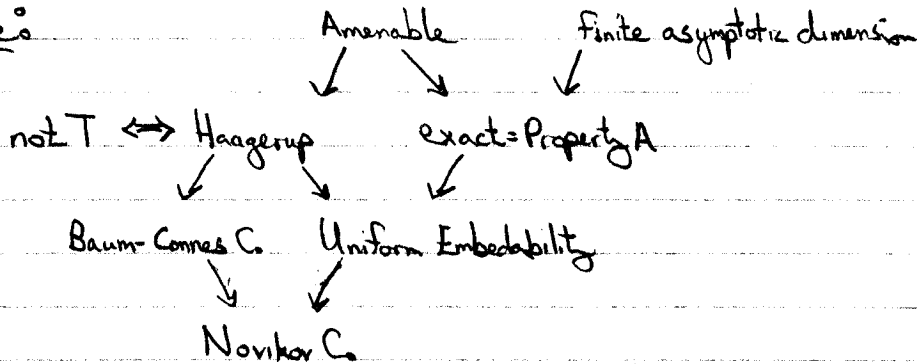 Amenable finite asymptotic dimension
not T ⟺ Haagerup exact = Property A
Baum-Connes C. Uniform Embedability
Novikov C.